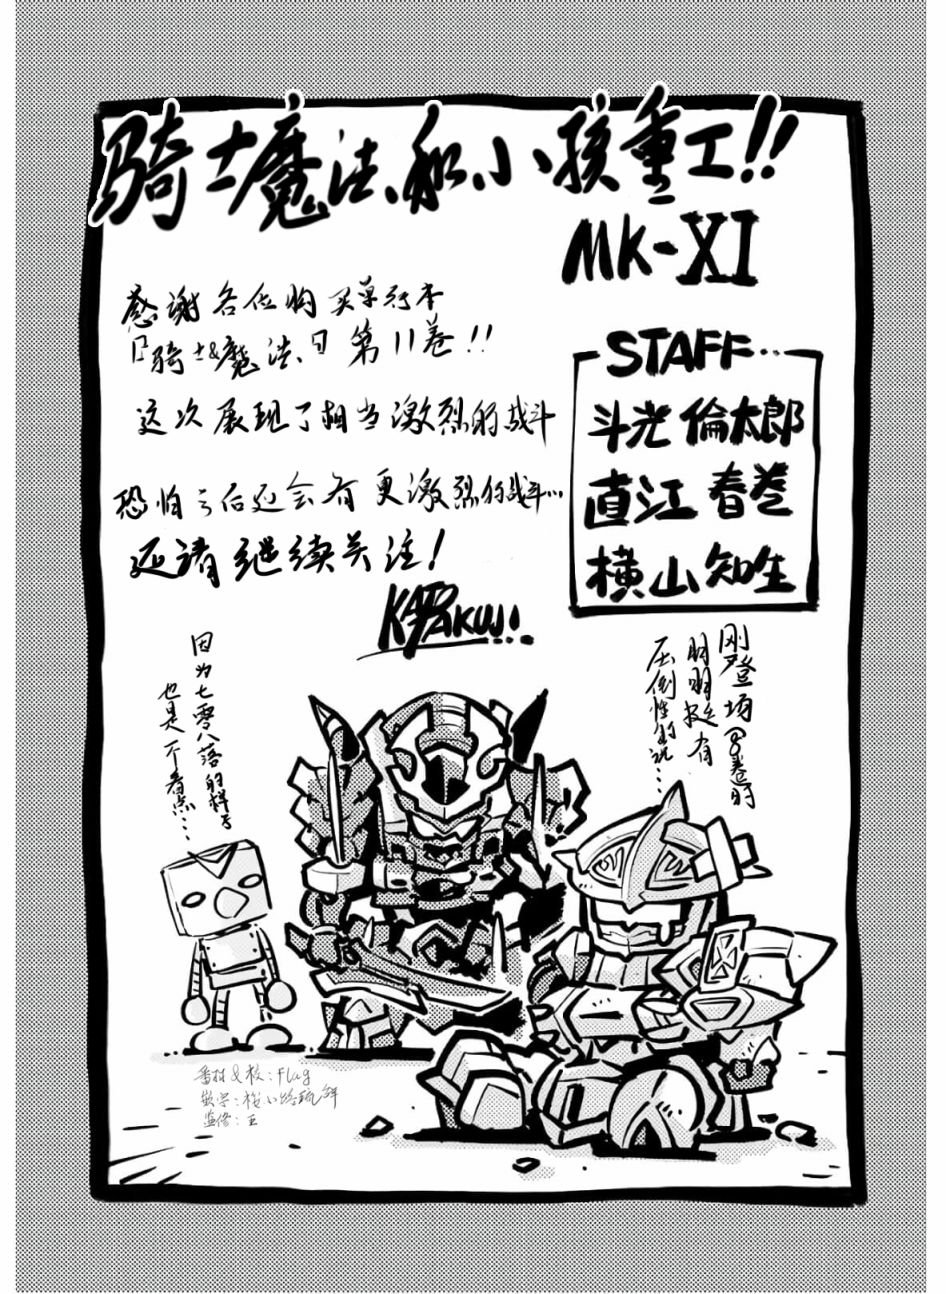 骑士魔法和小孩重工!!
MK-XI
感谢各位购买单行本
『骑士&魔法』第11卷!!
这次展现了相当激烈的战斗
恐怕之后还会有更激烈的战斗…
还请继续关注!
KATOTAKUJI
STAFF…
斗光 倫太郎
直江 春巻
横山 知生
刚登场8卷时
明明挺有
压倒性的说…
因为七零八落的样子
也是一个看点…
翻&校:Flag
嵌字:
监修:王